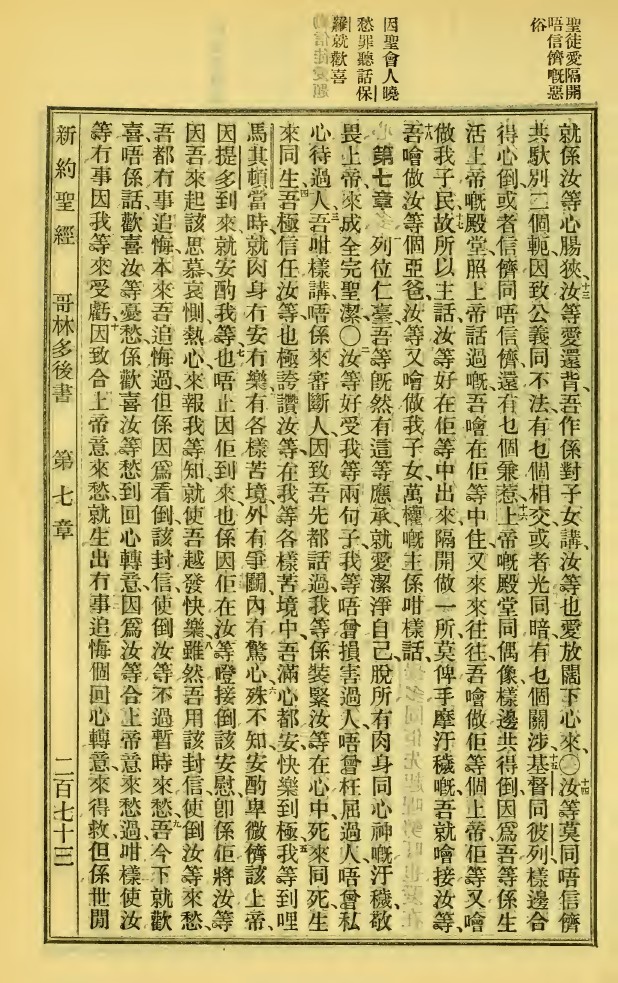 聖徒愛隔開
唔信儕嘅惡
俗
因聖會人曉
愁罪聽話保
羅就歡喜
就係汝等心腸狹、十三汝等愛還背、吾作係對子女講、汝等也愛放闊下心來、〇十四汝等莫同唔信儕
共馱別二個軛、因致公義同不法有乜個相交、或者光同暗有乜個關涉、十五基督同彼列樣邊合
得心倒、或者信儕同唔信儕、還有乜個兼惹、十六上帝嘅殿堂同偶像樣邊共得倒、因爲吾等係生
活上帝嘅殿堂、照上帝話過嘅、吾噲在佢等中住、又來來往往、吾噲做佢等個上帝、佢等又噲
做我子民、十七故所以主話、汝等好在佢等中出來、隔開做一所、莫俾手摩汙穢嘅、吾就噲接汝等、
十八吾噲做汝等個亞爸、汝等又噲做我子女、萬權嘅主係咁樣話、
第七章 列位仁臺、吾等旣然有這等應承、就愛潔淨自己、脫所有肉身同心神嘅汙穢、敬
畏上帝、來成全完聖潔、〇二汝等好受我等兩句子、我等唔曾損害過人、唔曾枉屈過人、唔曾私
心待過人、三吾咁樣講、唔係來審斷人、因致吾先都話過、我等係裝緊汝等在心中、死來同死、生
來同生、四吾極信任汝等、也極誇讚汝等、在我等各樣苦境中、吾滿心都安、快樂到極、五我等到哩
馬其頓當時、就肉身冇安冇樂、有各樣苦境、外有爭鬭、內有驚心、六殊不知安酌卑微儕該上帝、
因提多到來、就安酌我等、七也唔止因佢到來、也係因佢在汝等嶝接倒該安慰、卽係佢將汝等
因吾來起該思慕哀惻熱心、來報我等知、就使吾越發快樂、八雖然吾用該封信、使倒汝等來愁、
吾都冇事追悔、本來吾追悔過、但係因爲看倒該封信、使倒汝等不過暫時來愁、九吾今下就歡
喜、唔係話歡喜汝等憂愁、係歡喜汝等愁到回心轉意、因爲汝等合上帝意來愁過、咁樣使汝
等冇事因我等來受虧、十因致合上帝意來愁、就生出冇事追悔個回心轉意、來得救、但係世閒
新約聖經 哥林多後書 第七章 二百七十三